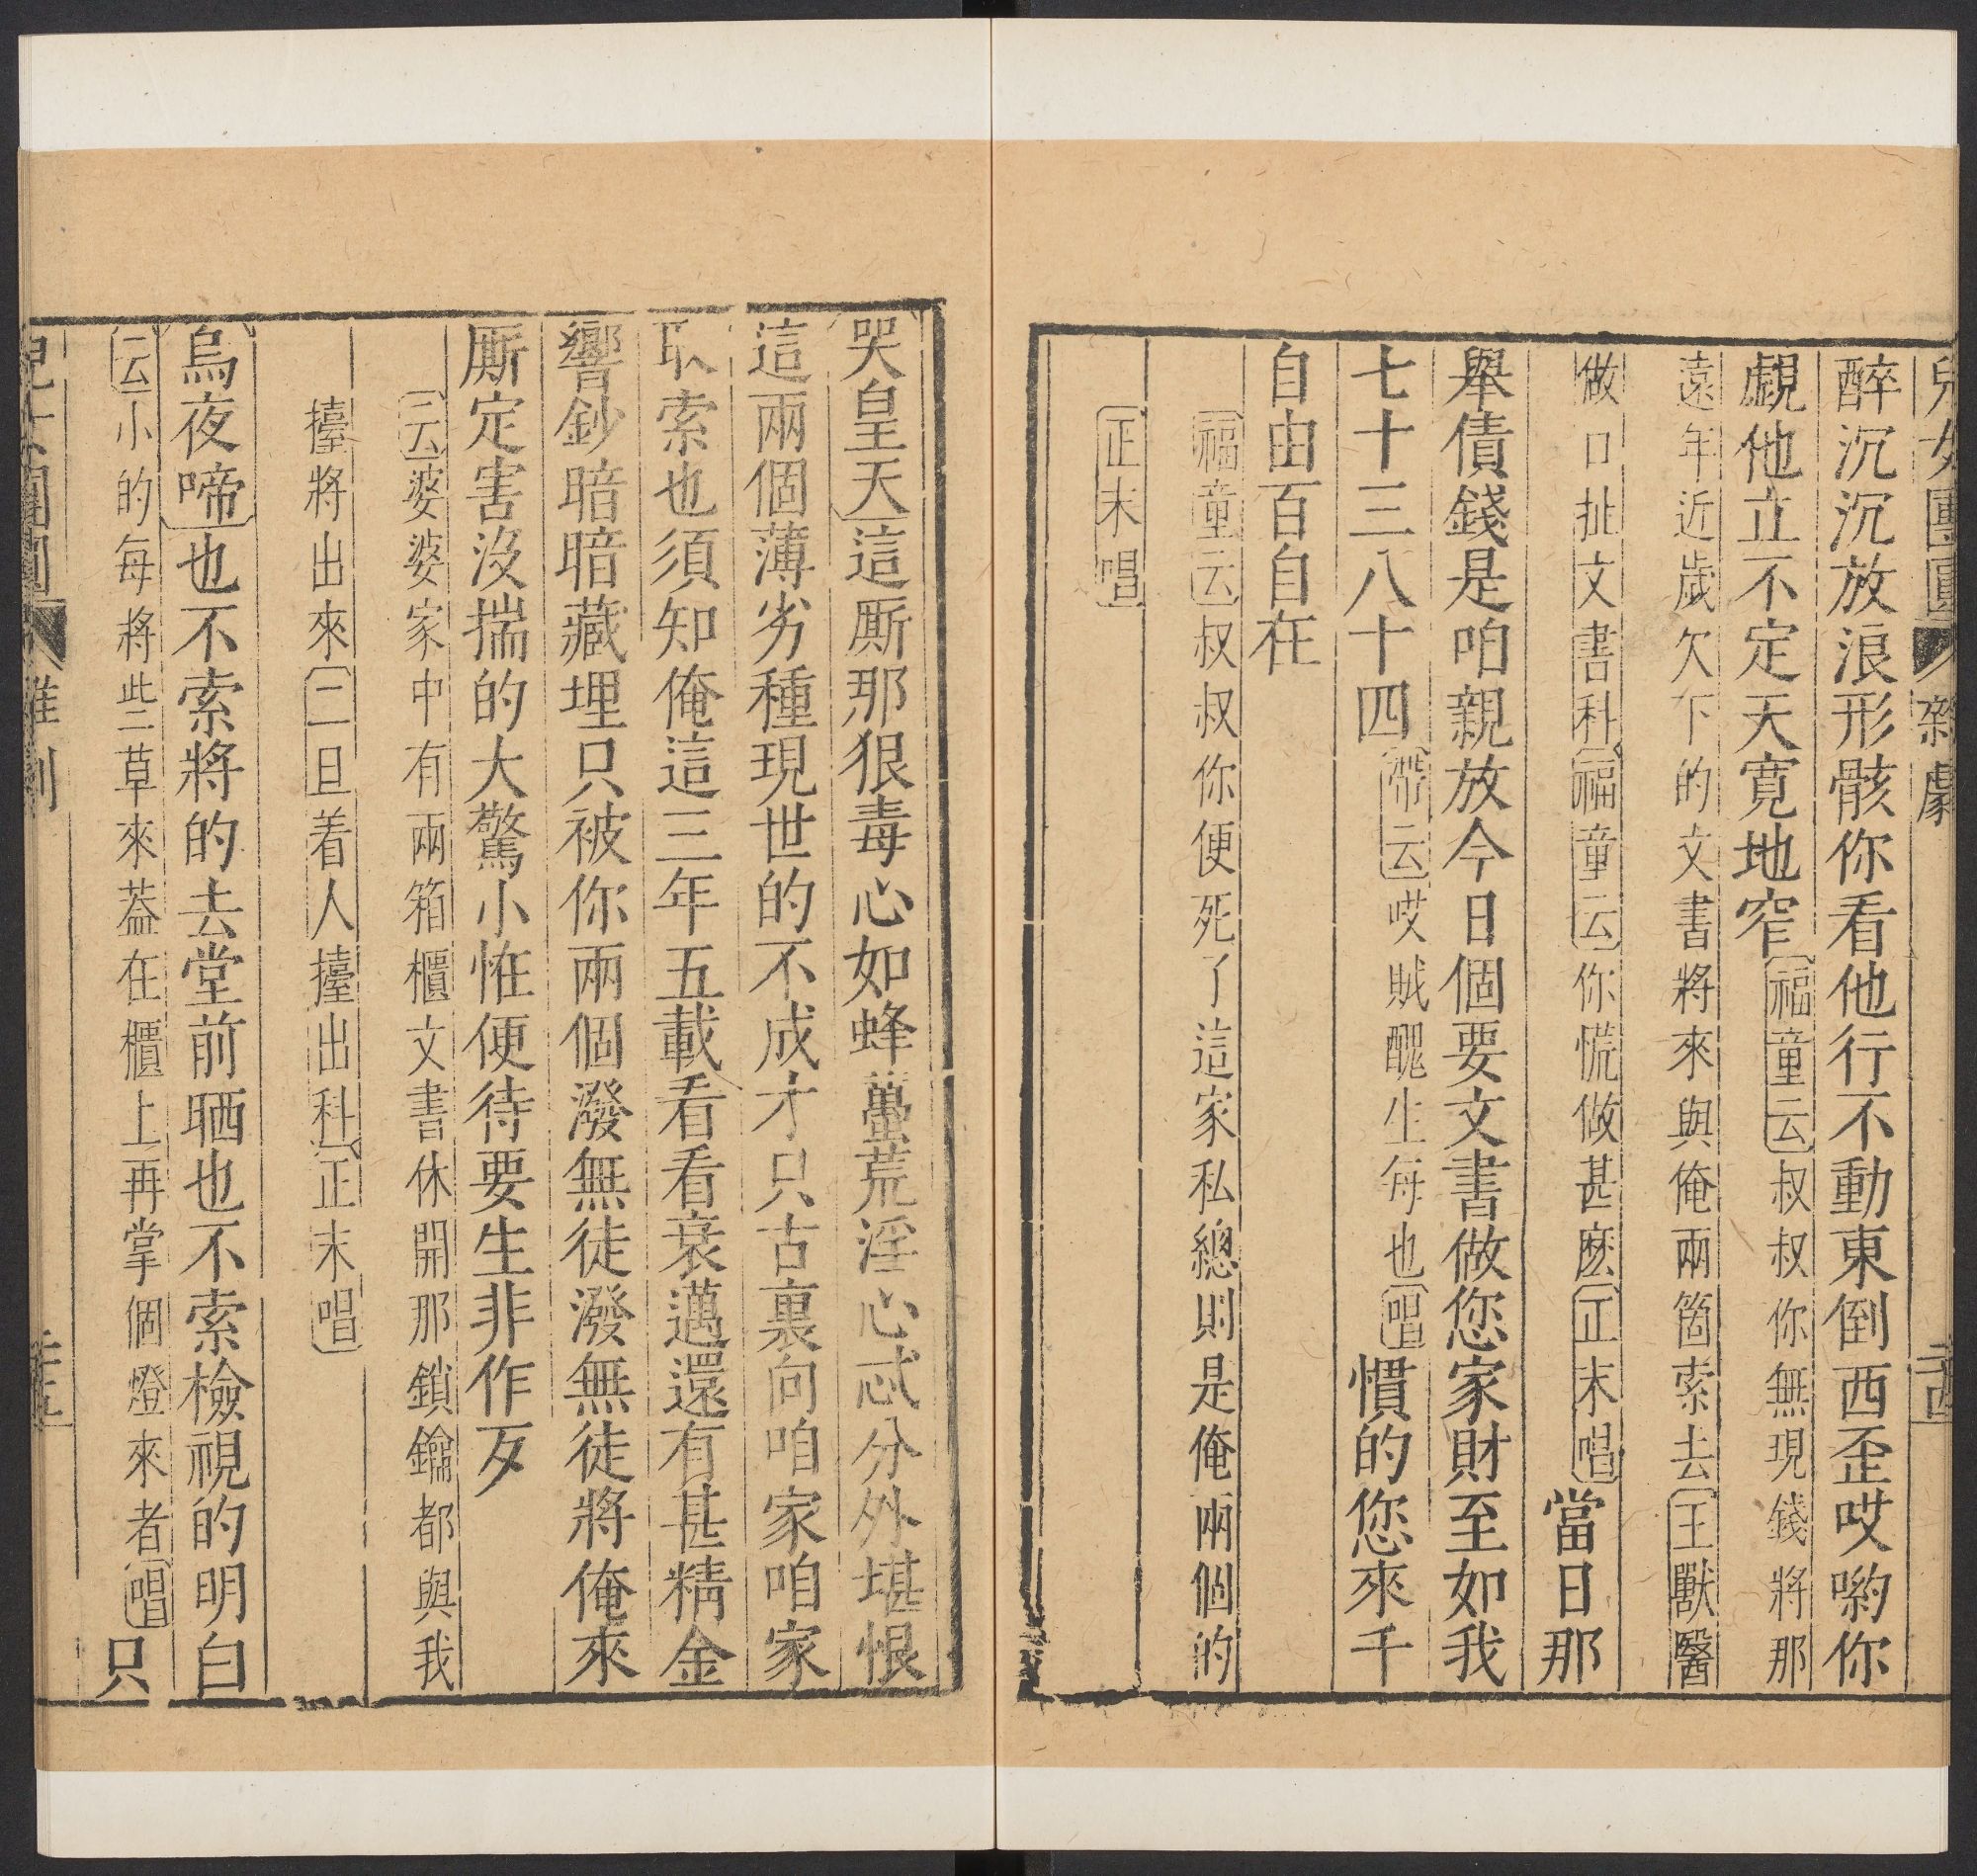 兒女團圓 雜劇 二十四
醉沉沉放浪形骸你看他行不動東倒西歪哎喲你
覷他立不定天寬地窄福童云叔叔你無現錢將那
遠年近歲欠下的文書將來與俺兩箇索去王獸醫
做口扯文書科福童云你慌做甚麽正末唱當日那
舉債錢是咱親放今日個要文書做您家財至如我
七十三八十四帶云哎賊醜生每也唱慣的您來千
自由百自在
福童云叔叔你便死了這家私總則是俺兩個的
正末唱
哭皇天這厮那狠毒心如蜂蠆荒淫心忒分外堪恨
這兩個薄劣種現世的不成才只古裏向咱家咱家
取索也須知俺這三年五載看看衰邁還有甚精金
響鈔暗暗藏埋只被你兩個潑無徒潑無徒將俺來
厮定害没揣的大驚小恠便待要生非作歹
二云婆婆家中有兩箱櫃文書休開那鎖鑰都與我
擡將出來二旦着人擡出科正末唱
烏夜啼也不索將的去堂前晒也不索檢視的明白
云小的每將些草來蓋在櫃上再掌個燈來者唱只
兒女團圓 雜劇